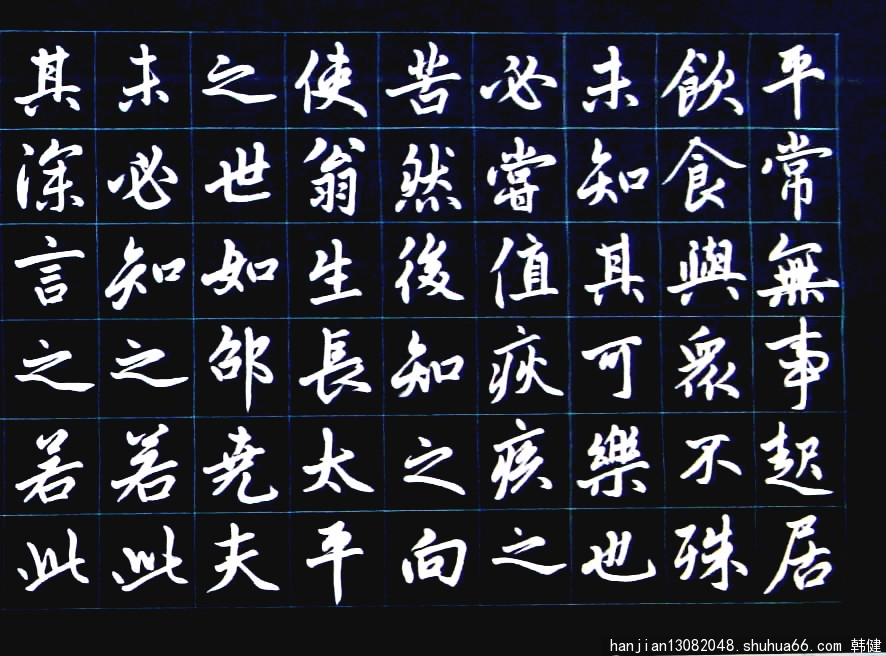 平常無事起居
飲食與衆不殊
未知其可樂也
必嘗值疢疾之
苦然後知之向
使翁生長太平
之世如邵堯夫
未必知之若此
其深言之若此
hanjian13082048.shuhua66.com 韩健